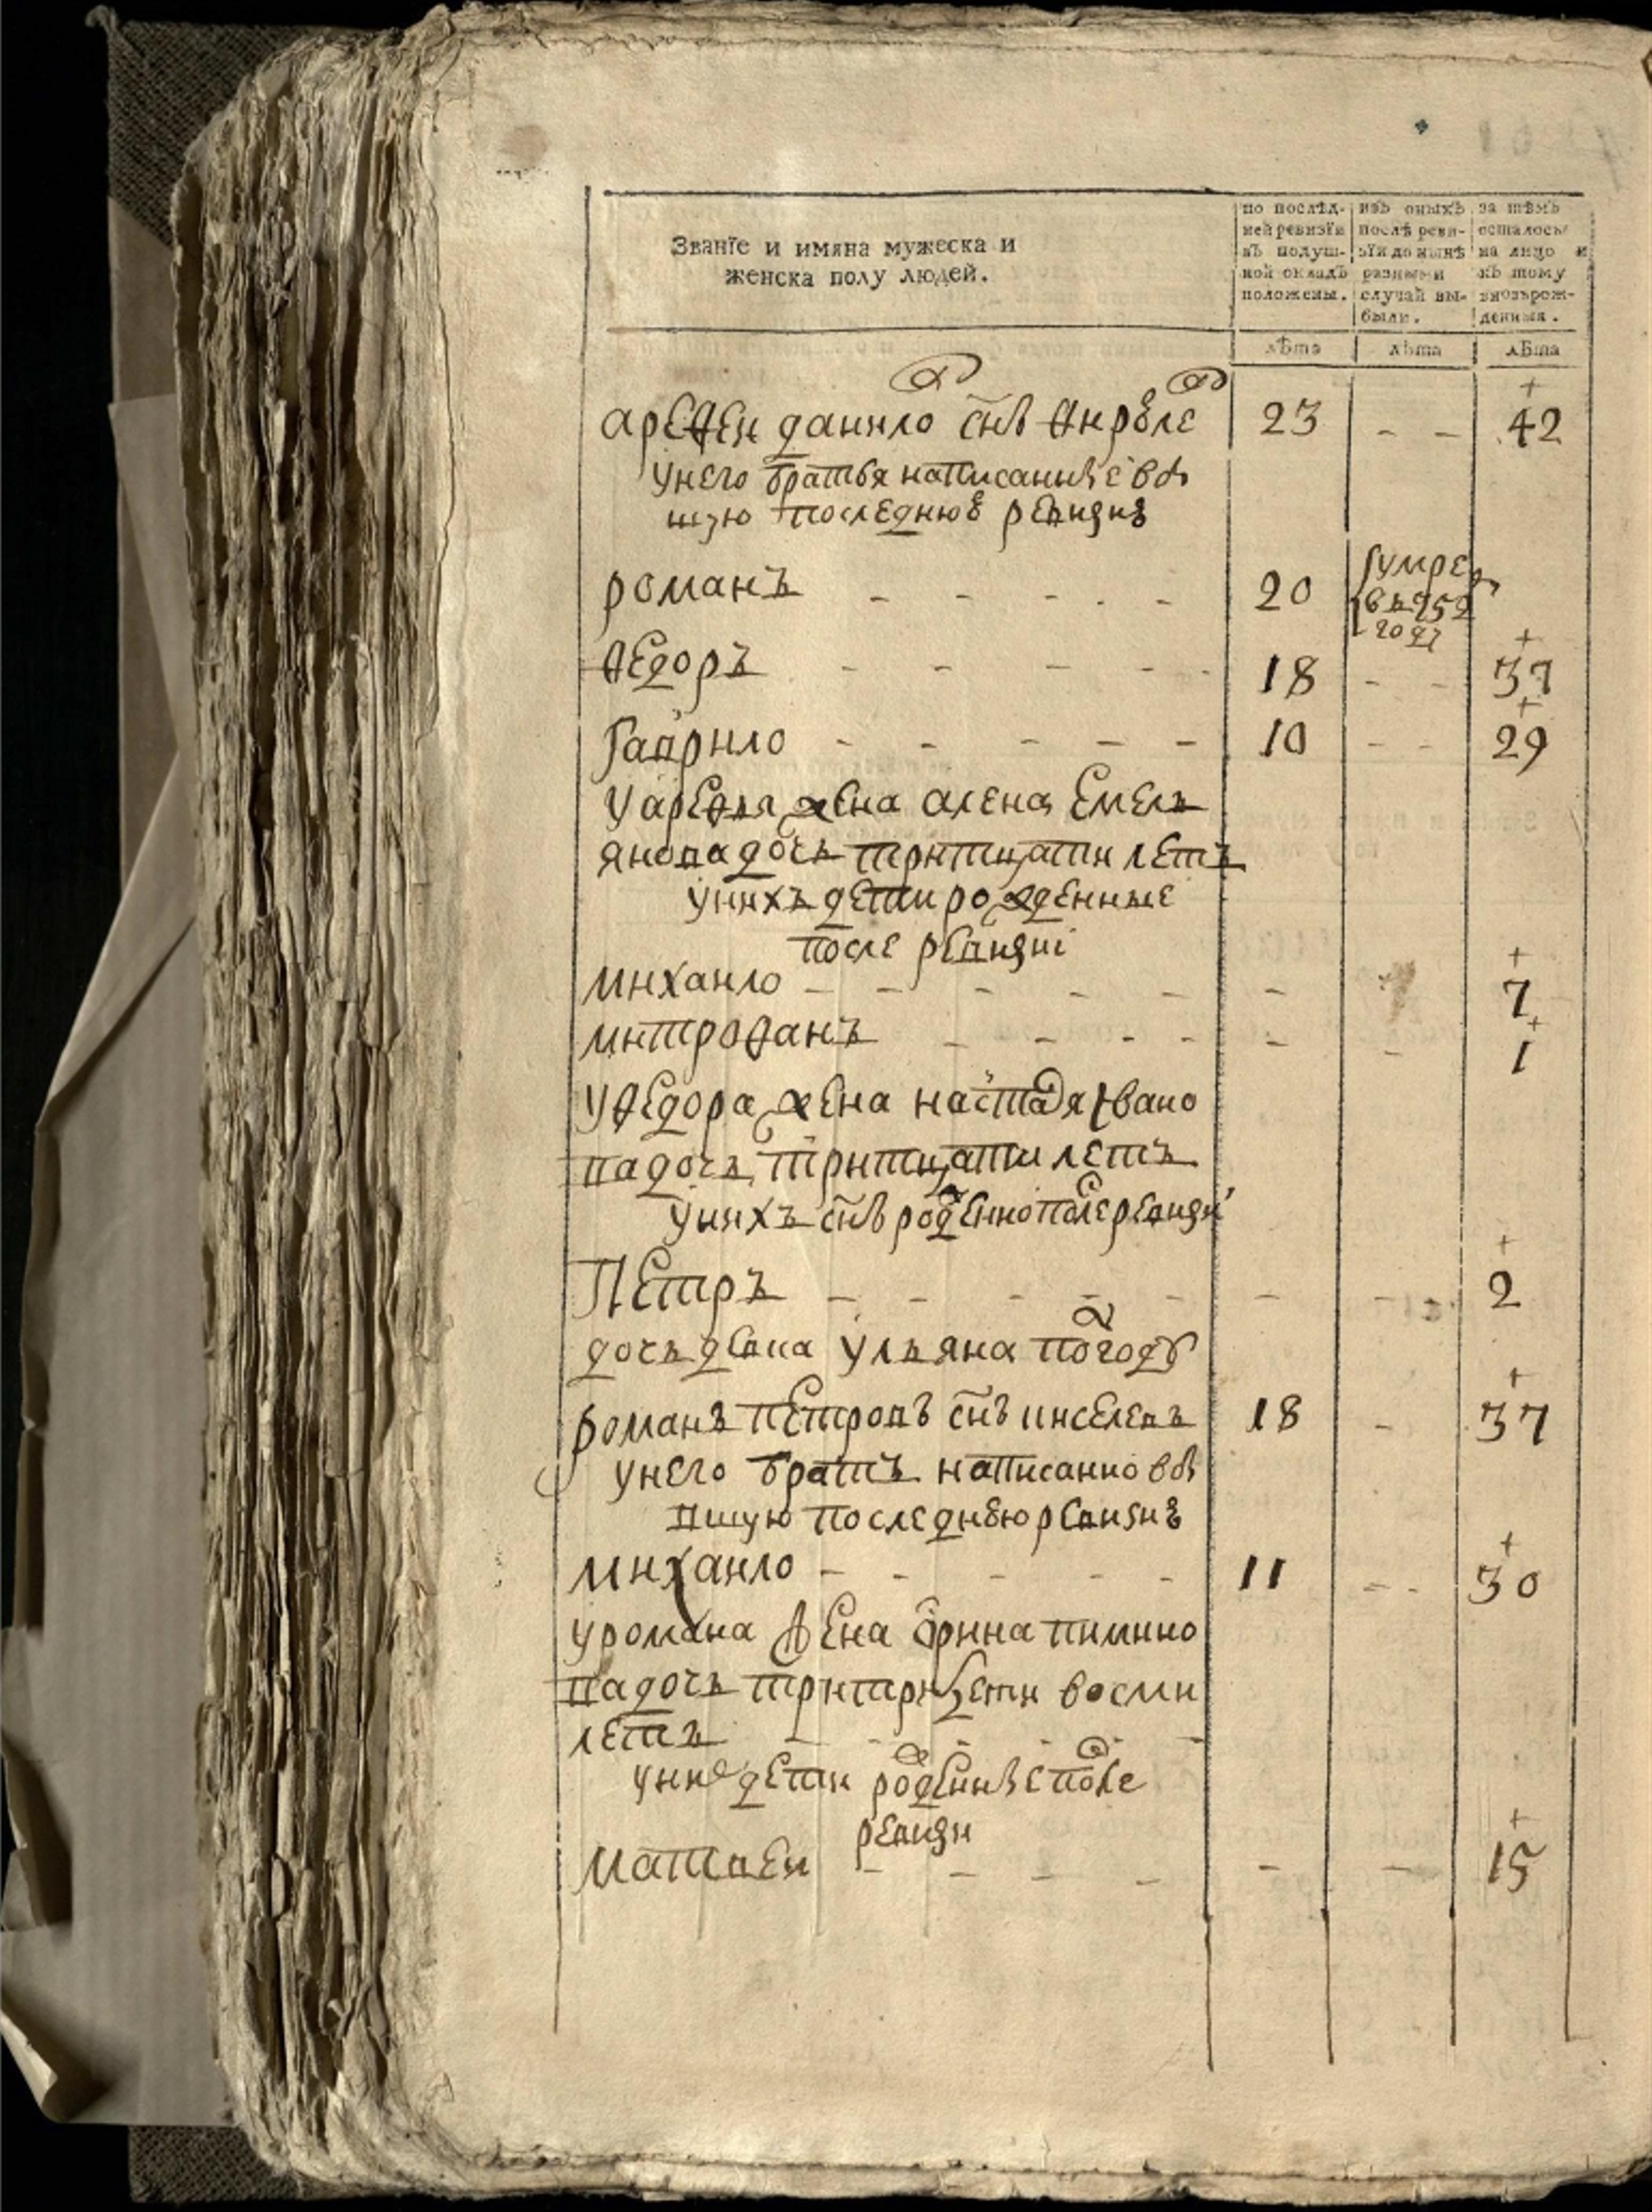 Званїе и имяна мужеска и
женска полу людей.
по послѣд-
ней ревизїи
въ подуш-
ной окладъ
положены.
изъ оныхъ
послѣ реви-
зїи до нынѣ
разными
случай вы-
были.
за тѣмъ
осталось
на лицо и
къ тому
вновьрож-
денныя.
лѣта лѣта лѣта
арефеи данило снъ 23 - - 42
унего братья написанные
последнюю
романъ - - - - - 20 умре
году
ѳедоръ - - - - - 18 - - 37
Гаврило - - - - - 10 - - 29
жена алена Емель
янова дочь тритцати летъ
унихъ дети рожденные
после ревизиi
михаило - - - - - - 7
митрофанъ - - - - - - 1
уѳедора жена настася Ивано
ва дочь тритцати летъ
унихъ снъ рожденно после ревизи
Петръ - - - - - - - 2
дочь девка ульяна
романъ петровъ снъ киселевъ 18 - 37
унего братъ написанно
последнюю
михаило - - - - - 11 - - 30
уромана жена пимино
ва дочь восми
летъ - - - - -
дети рожденные после
ревизи
Матвеи - - - - - - 15